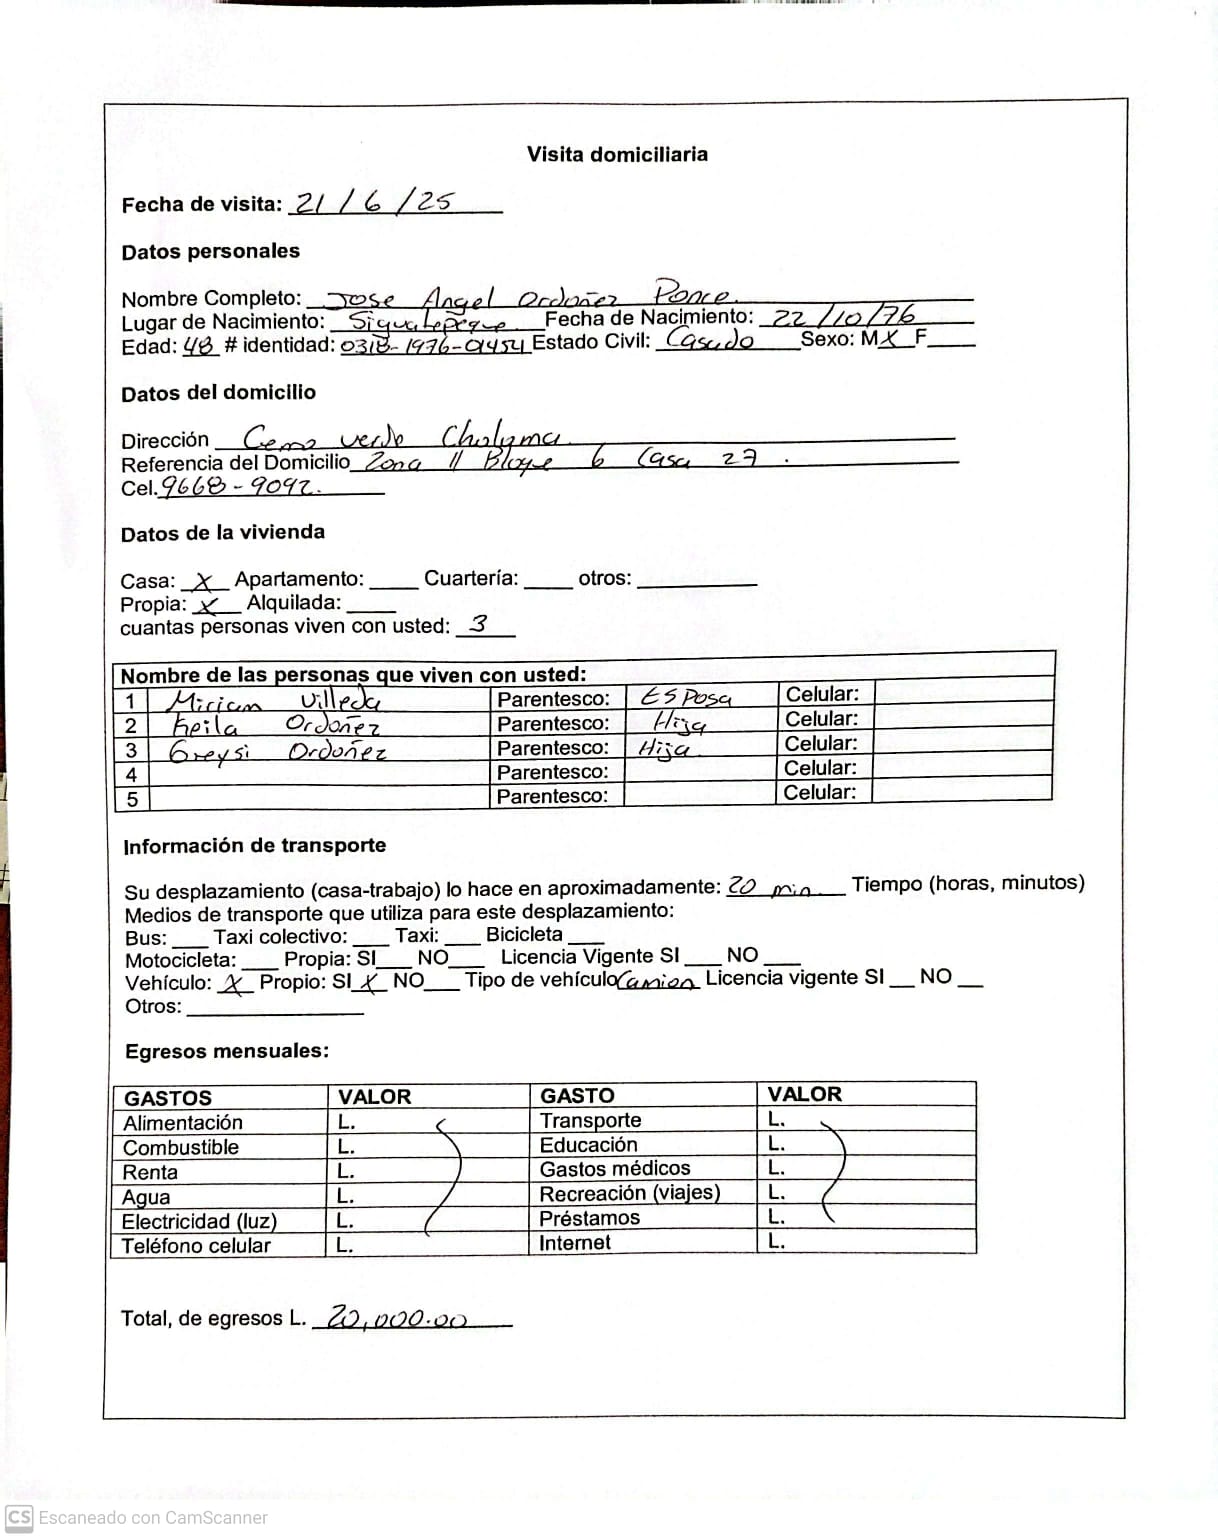 Visita domiciliaria
Fecha de visita: 21 / 6 / 25
Datos personales
Nombre Completo: Jose Angel Ordoñez Ponce.
Lugar de Nacimiento: Siguatepeque Fecha de Nacimiento: 22/10/76
Edad: 48 # identidad: 0318-1976-01454 Estado Civil: Casado Sexo: M X F
Datos del domicilio
Dirección Cerro verde Choloma
Referencia del Domicilio Zona 11 Bloque 6 Casa 27.
Cel. 9668-9092.
Datos de la vivienda
Casa: X Apartamento: Cuartería: otros:
Propia: X Alquilada:
cuantas personas viven con usted: 3
Nombre de las personas que viven con usted:
1 Miriam Villeda Parentesco: Esposa Celular:
2 Keila Ordoñez Parentesco: Hija Celular:
3 Greysi Ordoñez Parentesco: Hija Celular:
4 Parentesco: Celular:
5 Parentesco: Celular:
Información de transporte
Su desplazamiento (casa-trabajo) lo hace en aproximadamente: 20 min Tiempo (horas, minutos)
Medios de transporte que utiliza para este desplazamiento:
Bus: Taxi colectivo: Taxi: Bicicleta
Motocicleta: Propia: SI NO Licencia Vigente SI NO
Vehículo: X Propio: SI X NO Tipo de vehículo Camion Licencia vigente SI NO
Otros:
Egresos mensuales:
GASTOS VALOR GASTO VALOR
Alimentación L. Transporte L.
Combustible L. Educación L.
Renta L. Gastos médicos L.
Agua L. Recreación (viajes) L.
Electricidad (luz) L. Préstamos L.
Teléfono celular L. Internet L.
Total, de egresos L. 20,000.00
CS Escaneado con CamScanner